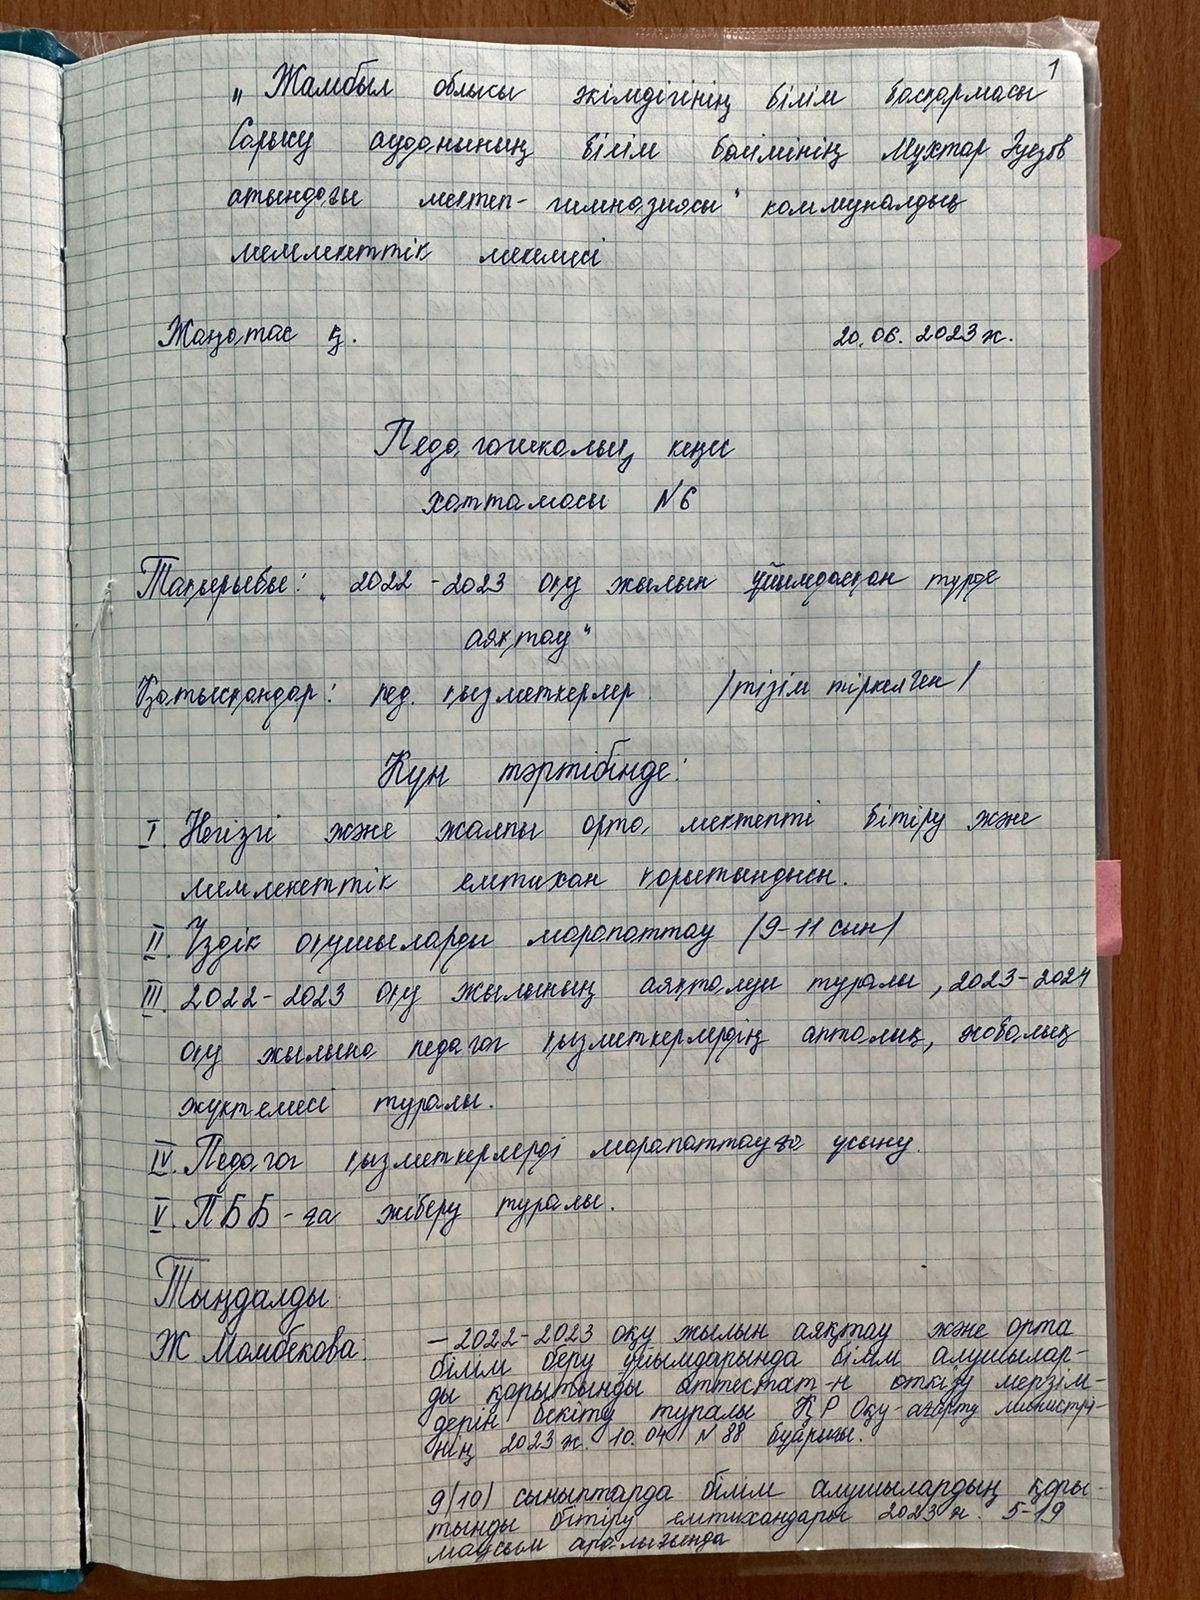 1
„Жамбыл облысы әкімдігінің білім басқармасы
Сарысу ауданының білім бөлімінің Мұхтар Әуезов
атындағы мектеп-гимназиясы" коммуналдық
мемлекеттік мекемесі
Жаңатас қ.
20.06.2023ж.
Педагогикалық кеңес
хаттамасы №6
Тақырыбы: „2022-2023 оқу жылын ұйымдасқан түрде
аяқтау"
Қатысқандар: пед. қызметкерлер /тізім тіркелген/
Күн тәртібінде:
I. Негізгі және жалпы орта мектепті бітіру және
мемлекеттік емтихан қорытындысы.
II. Үздік оқушыларды марапаттау /9-11 сын/
III. 2022-2023 оқу жылының аяқталуы туралы, 2023-2024
оқу жылына педагог қызметкерлердің апталық, жобалық
жүктемесі туралы.
IV. Педагог қызметкерлерді марапаттауға ұсыну.
V. ПББ-ға жіберу туралы.
Тыңдалды
Ж Момбекова:
- 2022-2023 оқу жылын аяқтау және орта
білім беру ұйымдарында білім алушылар-
ды қорытынды аттестат-н өткізу мерзім-
дерін бекіту туралы ҚР Оқу-ағарту министрі-
нің 2023ж. 10.04 №88 бұйрығы.
9(10) сыныптарда білім алушылардың қоры-
тынды бітіру емтихандары 2023ж. 5-19
маусым аралығында